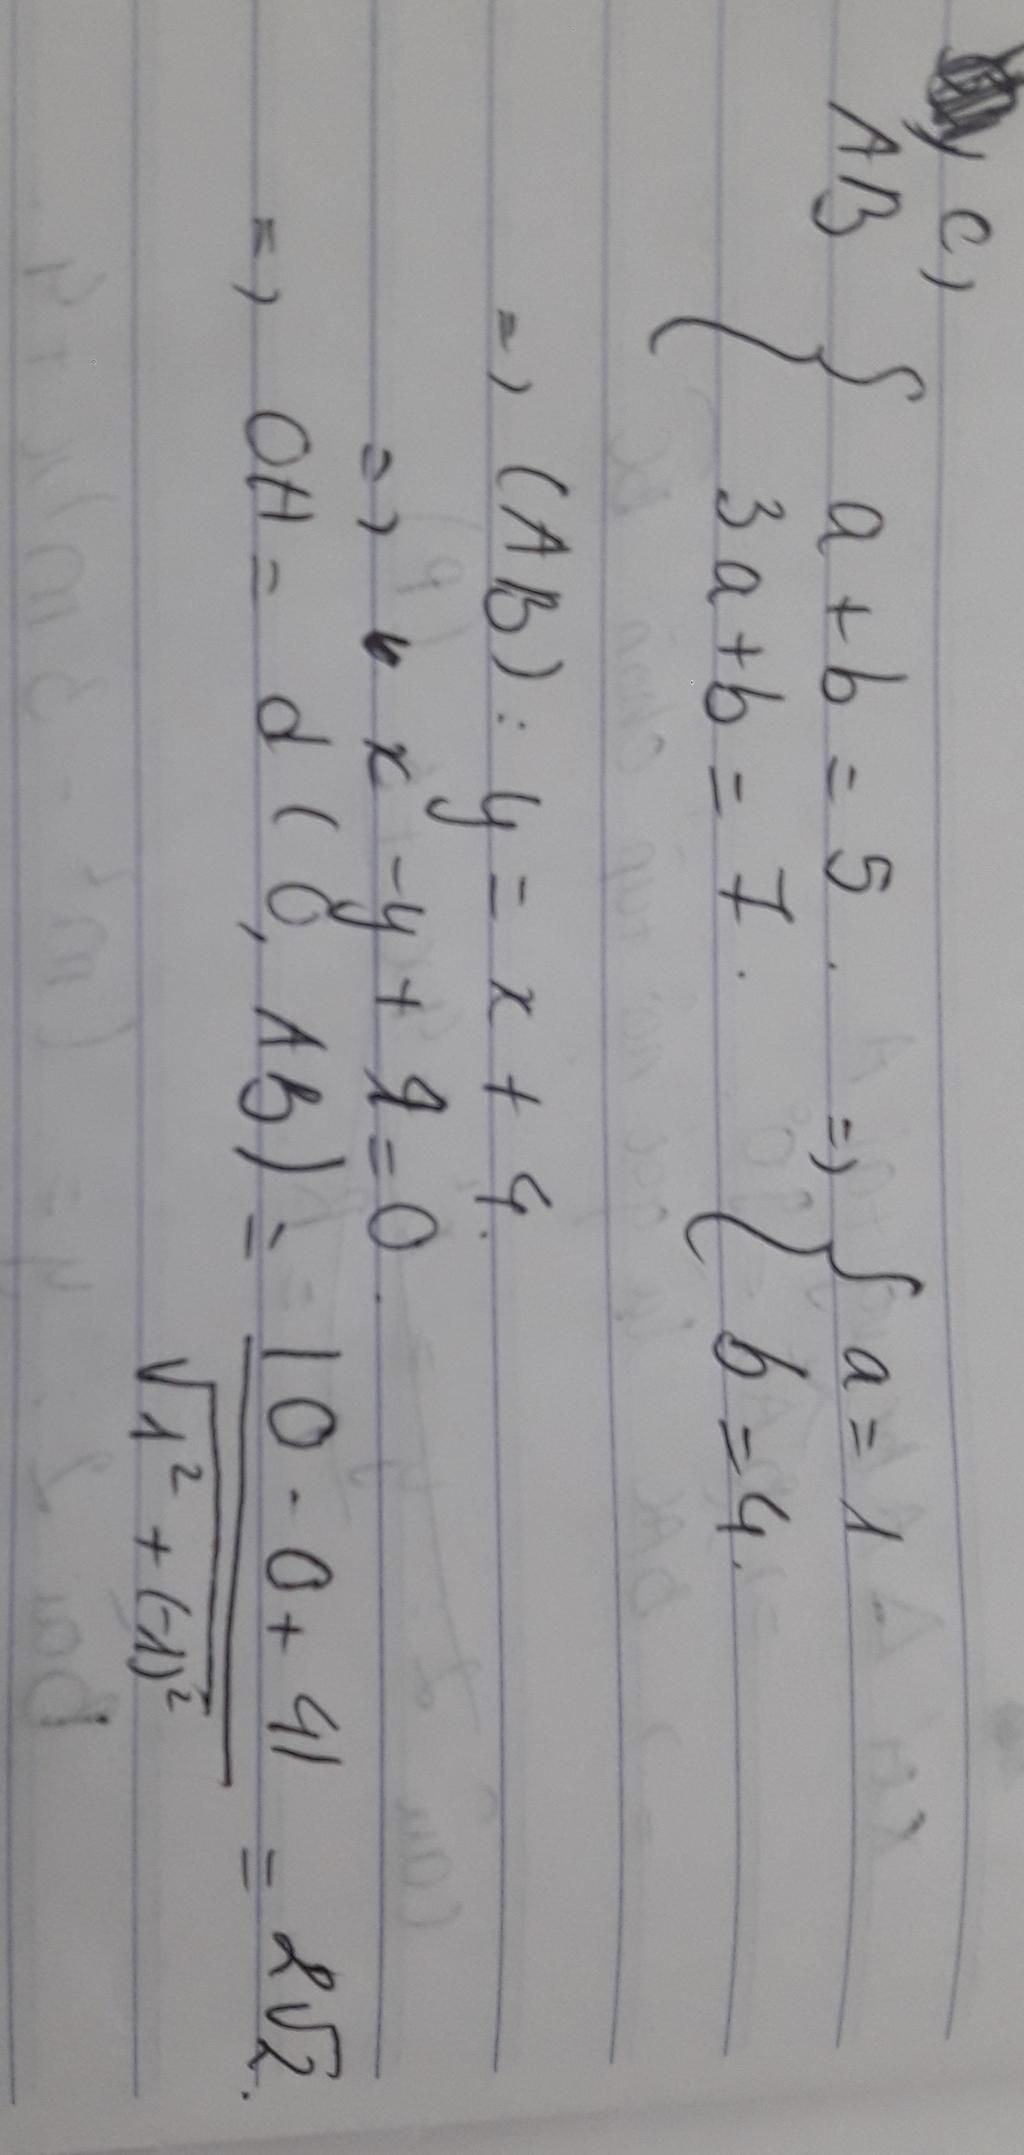 c)
AB { a + b = 5. => { a = 1
3a + b = 7. b = 4.
=> (AB): y = x + 4.
=> x - y + 4 = 0.
=> OH = d(O, AB) = |0 - 0 + 4| / √1² + (-1)² = 2√2.